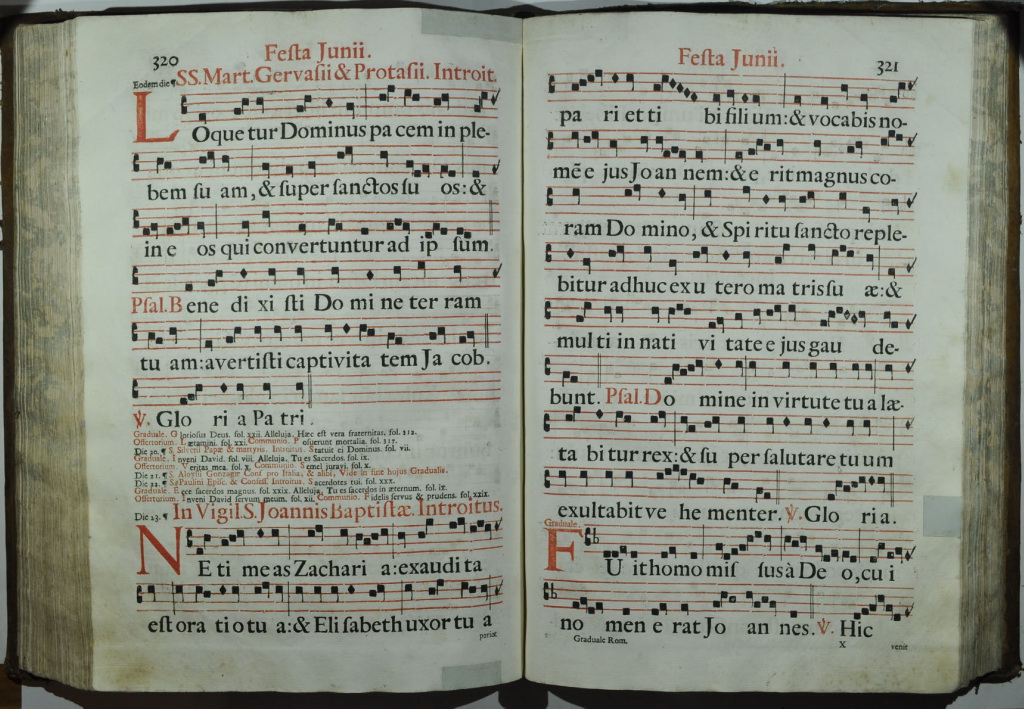 320
Festa Junii.
Eodem die ¶ SS. Mart. Gervasii & Protasii. Introit.
LOque tur Dominus pa cem in ple-
bem su am, & super sanctos su os: &
in e os qui convertuntur ad ip sum.
Psal. B ene di xi sti Do mi ne ter ram
tu am: avertisti captivita tem Ja cob.
℣. Glo ri a Pa tri.
Graduale. Gloriosus Deus. fol. xxii. Alleluja. Hæc est vera fraternitas. fol. 312.
Offertorium. Lætamini. fol. xxi. Communio. Posuerunt mortalia. fol. 317.
Die 20. ¶ S. Silverii Papæ & martyris. Introitus. Statuit ei Dominus. fol. vii.
Graduale. Inveni David. fol. viii. Alleluja. Tu es Sacerdos. fol. ix.
Offertorium. Veritas mea. fol. x. Communio. Semel juravi. fol. x.
Die 21. ¶ S. Aloysii Gonzagæ Conf. pro Italia, & alibi, Vide in fine hujus Gradualis.
Die 22. ¶ S. Paulini Epis. & Confess. Introitus. Sacerdotes tui. fol. xxx.
Graduale. Ecce sacerdos magnus. fol. xxix. Alleluja. Tu es sacerdos in æternum. fol. ix.
Offertorium. Inveni David servum meum. fol. xii. Communio. Fidelis servus & prudens. fol. xxix.
Die 23. ¶ In Vigil. S. Joannis Baptistæ. Introitus.
NE ti me as Zachari a: exaudi ta
est ora ti o tu a: & Eli sabeth uxor tu a
pariet
Festa Junii.
321
pa ri et ti bi fili um: & vocabis no-
mē e jus Jo an nem: & e rit magnus co-
ram Do mino, & Spi ritu sancto reple-
bitur adhuc ex u tero ma tris su æ: &
mul ti in nati vi tate e jus gau de-
bunt. Psal. Do mine in virtute tu a læ-
ta bi tur rex: & su per salutare tu um
exultabit ve he menter. ℣. Glo ri a.
Graduale.
FU it homo mis sus à De o, cu i
no men e rat Jo an nes. ℣. Hic
Graduale Rom.
X
venit